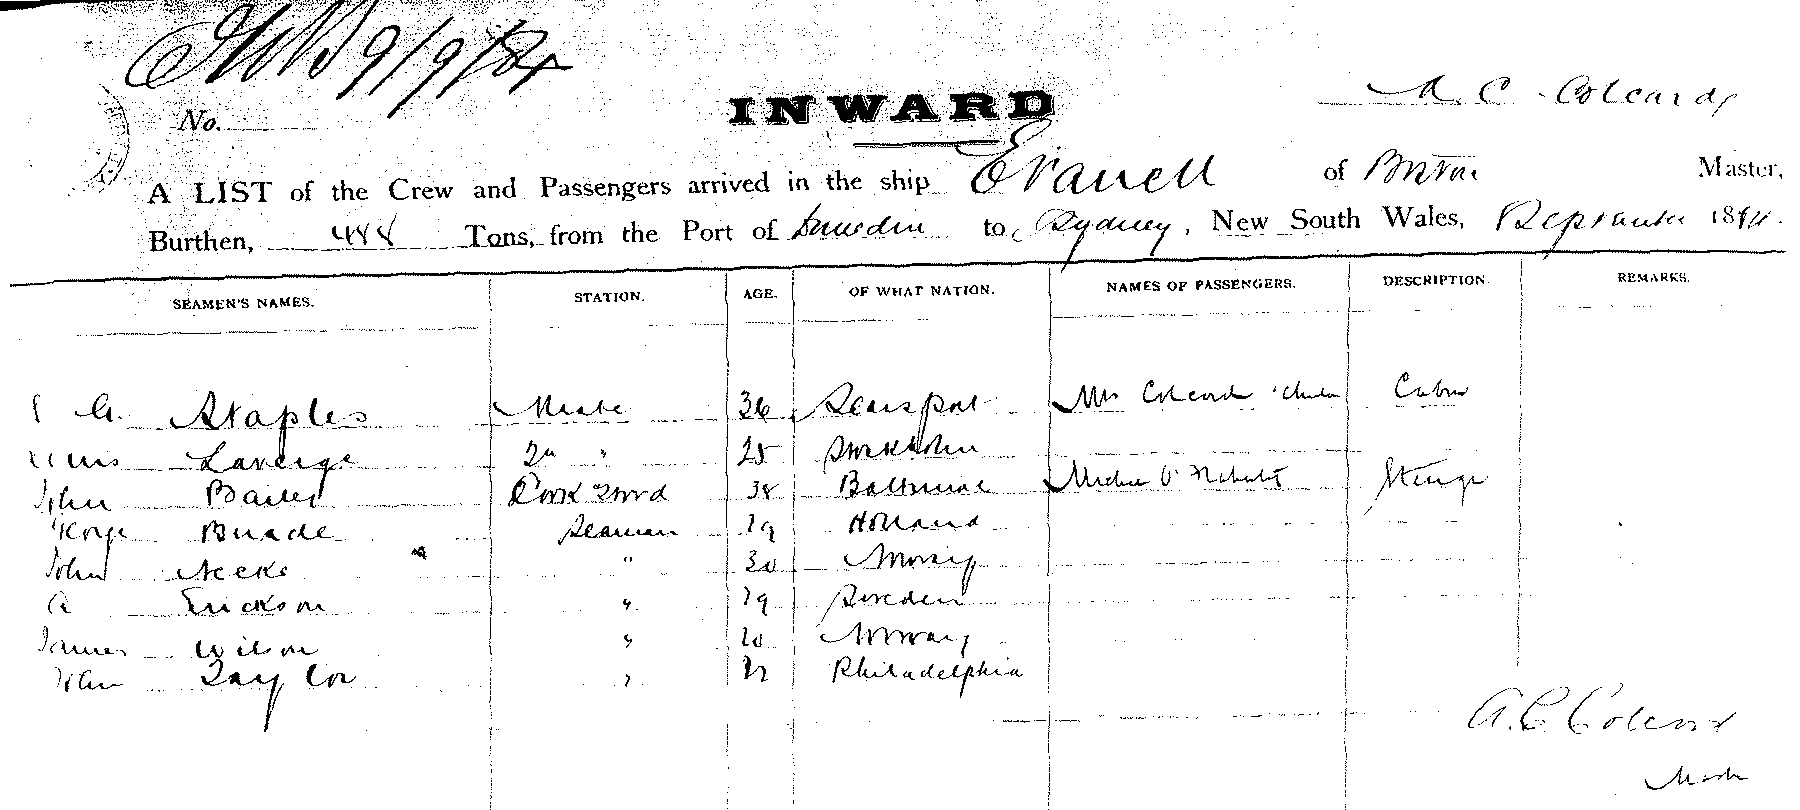 9/9/84
No. INWARD A. C. Colcord
A LIST of the Crew and Passengers arrived in the ship Evanell of Boston Master,
Burthen, 488 Tons, from the Port of Dunedin to Sydney, New South Wales, September 1884.
SEAMEN'S NAMES. STATION. AGE. OF WHAT NATION. NAMES OF PASSENGERS. DESCRIPTION. REMARKS.
G. Staples Mate 36 Searsport Mrs Colcord Cabin
25 Stockholm
John Bailey Cook 38 Baltimore
George Buade Seaman 19 Holland
John " 30 Norway
A Erickson " 19 Sweden
James Wilson " 20 Norway
John Taylor " Philadelphia
A. C. Colcord